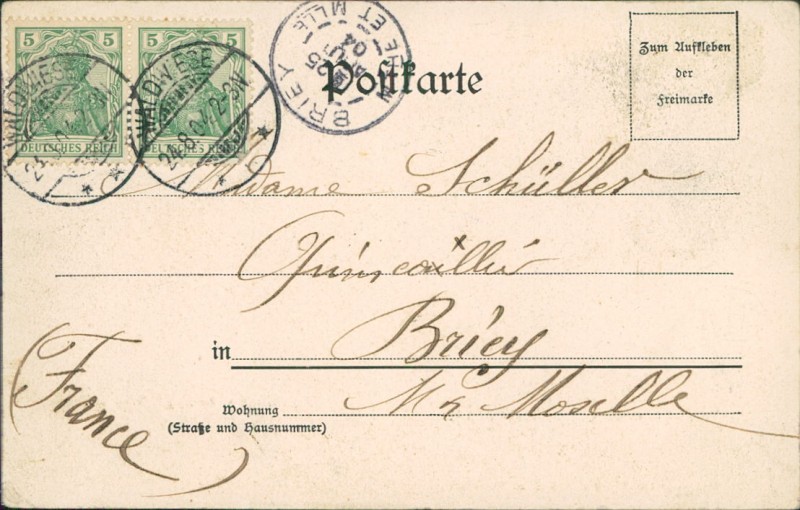 5 5 5 5
DEUTSCHES REICH DEUTSCHES REICH
WALDWIESE
WALDWIESE
24.8.04. 2-3N
BRIEY
25
04
Postkarte
Zum Aufkleben
der
Freimarke
Madame Schüller
Quincaillier
in Briey
Mr Moselle
France
Wohnung
(Straße und Hausnummer)